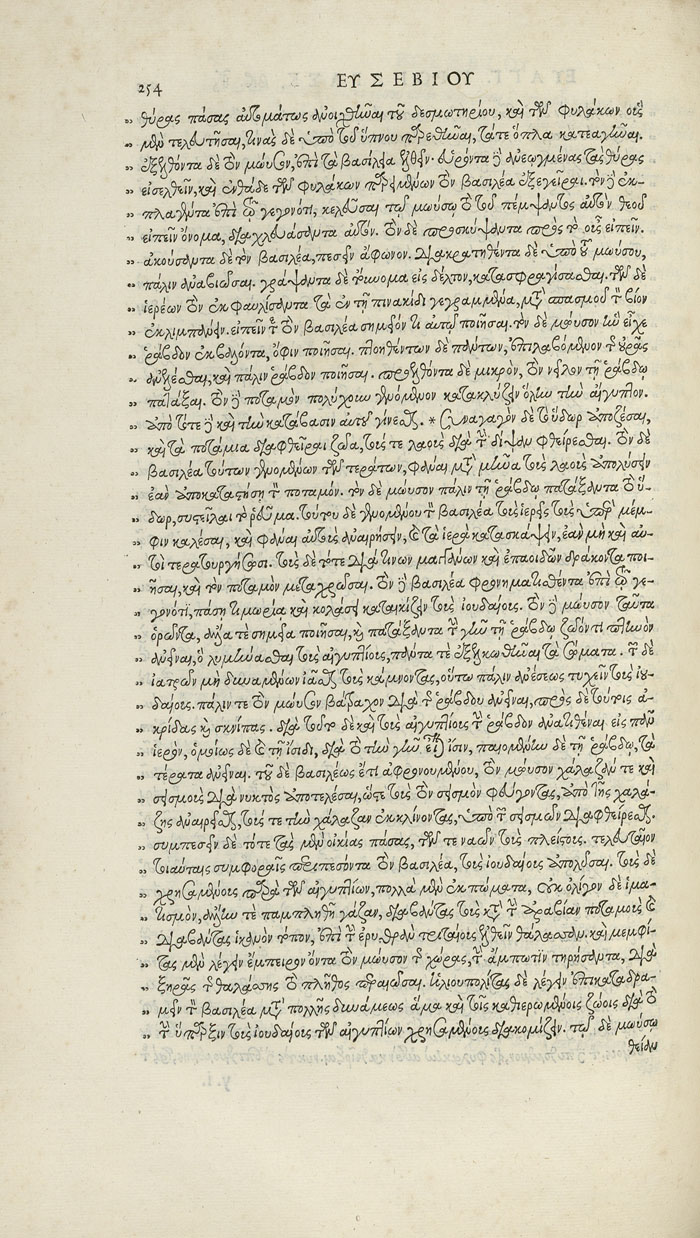 254 ΕΥΣΕΒΙΟΥ
„ θύρας πάσας αὐτομάτως ἀνοιχθῆναι τοῦ δεσμωτηρίου, καὶ τῶν φυλάκων οὓς
„ μὲν τελευτῆσαι, τινὰς δὲ ὑπὸ τοῦ ὕπνου παρεθῆναι, τά τε ὅπλα κατεαγῆναι.
„ ἐξελθόντα δὲ τὸν μώυσον, ἐπὶ τὰ βασίλεια ἐλθεῖν· εὑρόντα δὲ ἀνεωγμένας τὰς θύρας
„ εἰσελθεῖν, καὶ ἐνθάδε τῶν φυλάκων παρειμένων τὸν βασιλέα ἐξεγεῖραι. τὸν δὲ ἐκ-
„ πλαγέντα ἐπὶ τῷ γεγονότι, κελεῦσαι τῷ μωύσῳ τὸ τοῦ πέμψαντος αὐτὸν θεοῦ
„ εἰπεῖν ὄνομα, διαχλευάσαντα αὐτόν. τὸν δὲ προσκύψαντα πρὸς τὸ οὖς εἰπεῖν.
„ ἀκούσαντα δὲ τὸν βασιλέα, πεσεῖν ἄφωνον. διακρατηθέντα δὲ ὑπὸ τοῦ μωύσου,
„ πάλιν ἀναβιῶσαι. γράψαντα δὲ τοὔνομα εἰς δέλτον, κατασφραγίσασθαι. τῶν δὲ
„ ἱερέων τὸν ἐκφαυλίσαντα τὰ ἐν τῇ πινακίδι γεγραμμένα, μετὰ σπασμοῦ τὸν βίον
„ ἐκλιμπάνειν. εἰπεῖν τε τὸν βασιλέα σημεῖόν τι αὐτῷ ποιῆσαι. τὸν δὲ μώυσον ἣν εἶχε
„ ῥάβδον ἐκβαλόντα, ὄφιν ποιῆσαι. πτοηθέντων δὲ πάντων, ἐπιλαβόμενον τῆς οὐρᾶς
„ ἀνελέσθαι, καὶ πάλιν ῥάβδον ποιῆσαι. προελθόντα δὲ μικρὸν, τὸν νεῖλον τῇ ῥάβδῳ
„ πατάξαι. τὸν δὲ ποταμὸν πολύχουν γενόμενον κατακλύζειν ὅλην τὴν αἴγυπτον.
„ ἀπὸ τότε δὲ καὶ τὴν κατάβασιν αὐτοῦ γίνεσθαι. * συναγαγὸν δὲ τὸ ὕδωρ ἀποζέσαι,
„ καὶ τὰ ποτάμια διαφθεῖραι ζῶα, τούς τε λαοὺς διὰ τὴν δίψαν φθείρεσθαι. τὸν δὲ
„ βασιλέα τούτων γενομένων τῶν τεράτων, φάναι μετὰ μῆνα τοὺς λαοὺς ἀπολύσειν
„ ἐὰν ἀποκαταστήσῃ τὸν ποταμόν. τὸν δὲ μώυσον πάλιν τῇ ῥάβδῳ πατάξαντα τὸ ὕ-
„ δωρ, συστεῖλαι τὸ ῥεῦμα. τούτου δὲ γενομένου τὸν βασιλέα τοὺς ἱερεῖς τοὺς ὑπὲρ μέμ-
„ φιν καλέσαι, καὶ φάναι αὐτοὺς ἀναιρήσειν, καὶ τὰ ἱερὰ κατασκάψειν, ἐὰν μὴ καὶ αὐ-
„ τοὶ τερατουργήσωσι. τοὺς δὲ τότε διά τινων μαγγάνων καὶ ἐπαοιδῶν δράκοντα ποι-
„ ῆσαι, καὶ τὸν ποταμὸν μεταχρῶσαι. τὸν δὲ βασιλέα φρονηματισθέντα ἐπὶ τῷ γε-
„ γονότι, πάσῃ τιμωρίᾳ καὶ κολάσει καταικίζειν τοὺς ἰουδαίους. τὸν δὲ μώυσον ταῦτα
„ ὁρῶντα, ἄλλα τε σημεῖα ποιῆσαι, καὶ πατάξαντα τὴν γῆν τῇ ῥάβδῳ ζῶόν τι πτηνὸν
„ ἀνεῖναι, ὃ λυμαίνεσθαι τοὺς αἰγυπτίους, πάντα τε ἐξελκωθῆναι τὰ σώματα. τῶν δὲ
„ ἰατρῶν μὴ δυναμένων ἰᾶσθαι τοὺς κάμνοντας, οὕτω πάλιν ἀνέσεως τυχεῖν τοὺς ἰου-
„ δαίους. πάλιν τε τὸν μώυσον βάτραχον διὰ τῆς ῥάβδου ἀνεῖναι, πρὸς δὲ τούτοις ἀ-
„ κρίδας καὶ σκνίπας. διὰ τοῦτο δὲ καὶ τοὺς αἰγυπτίους τὴν ῥάβδον ἀνατιθέναι εἰς πᾶν
„ ἱερὸν, ὁμοίως δὲ καὶ τῇ ἴσιδι, διὰ τὸ τὴν γῆν εἶναι ἶσιν, παιομένην δὲ τῇ ῥάβδῳ, τὰ
„ τέρατα ἀνεῖναι. τοῦ δὲ βασιλέως ἔτι ἀφρονουμένου, τὸν μώυσον χάλαζάν τε καὶ
„ σεισμοὺς διὰ νυκτὸς ἀποτελέσαι, ὥστε τοὺς τὸν σεισμὸν φεύγοντας, ἀπὸ τῆς χαλά-
„ ζης ἀναιρεῖσθαι, τούς τε τὴν χάλαζαν ἐκκλίνοντας, ὑπὸ τῶν σεισμῶν διαφθείρεσθαι.
„ συμπεσεῖν δὲ τότε τὰς μὲν οἰκίας πάσας, τῶν τε ναῶν τοὺς πλείστους. τελευταῖον
„ τοιαύταις συμφοραῖς περιπεσόντα τὸν βασιλέα, τοὺς ἰουδαίους ἀπολῦσαι. τοὺς δὲ
„ χρησαμένους παρὰ τῶν αἰγυπτίων, πολλὰ μὲν ἐκπώματα, οὐκ ὀλίγον δὲ ἱμα-
„ τισμὸν, ἄλλην τε παμπληθῆ γάζαν, διαβάντας τοὺς κατὰ τὴν ἀραβίαν ποταμοὺς καὶ
„ διαβάντας ἱκανὸν τόπον, ἐπὶ τὴν ἐρυθρὰν τριταίους ἐλθεῖν θάλασσαν. καὶ μεμφί-
„ τας μὲν λέγειν ἔμπειρον ὄντα τὸν μώυσον τῆς χώρας, τὴν ἄμπωτιν τηρήσαντα, διὰ
„ ξηρᾶς τῆς θαλάσσης τὸ πλῆθος περαιῶσαι. ἡλιουπολίτας δὲ λέγειν ἐπικαταδρα-
„ μεῖν τὸν βασιλέα μετὰ πολλῆς δυνάμεως ἅμα καὶ τοῖς καθιερωμένοις ζώοις διὰ τὸ
„ τὴν ὕπαρξιν τοὺς ἰουδαίους τῶν αἰγυπτίων χρησαμένους διακομίζειν. τῷ δὲ μωύσῳ
θείαν